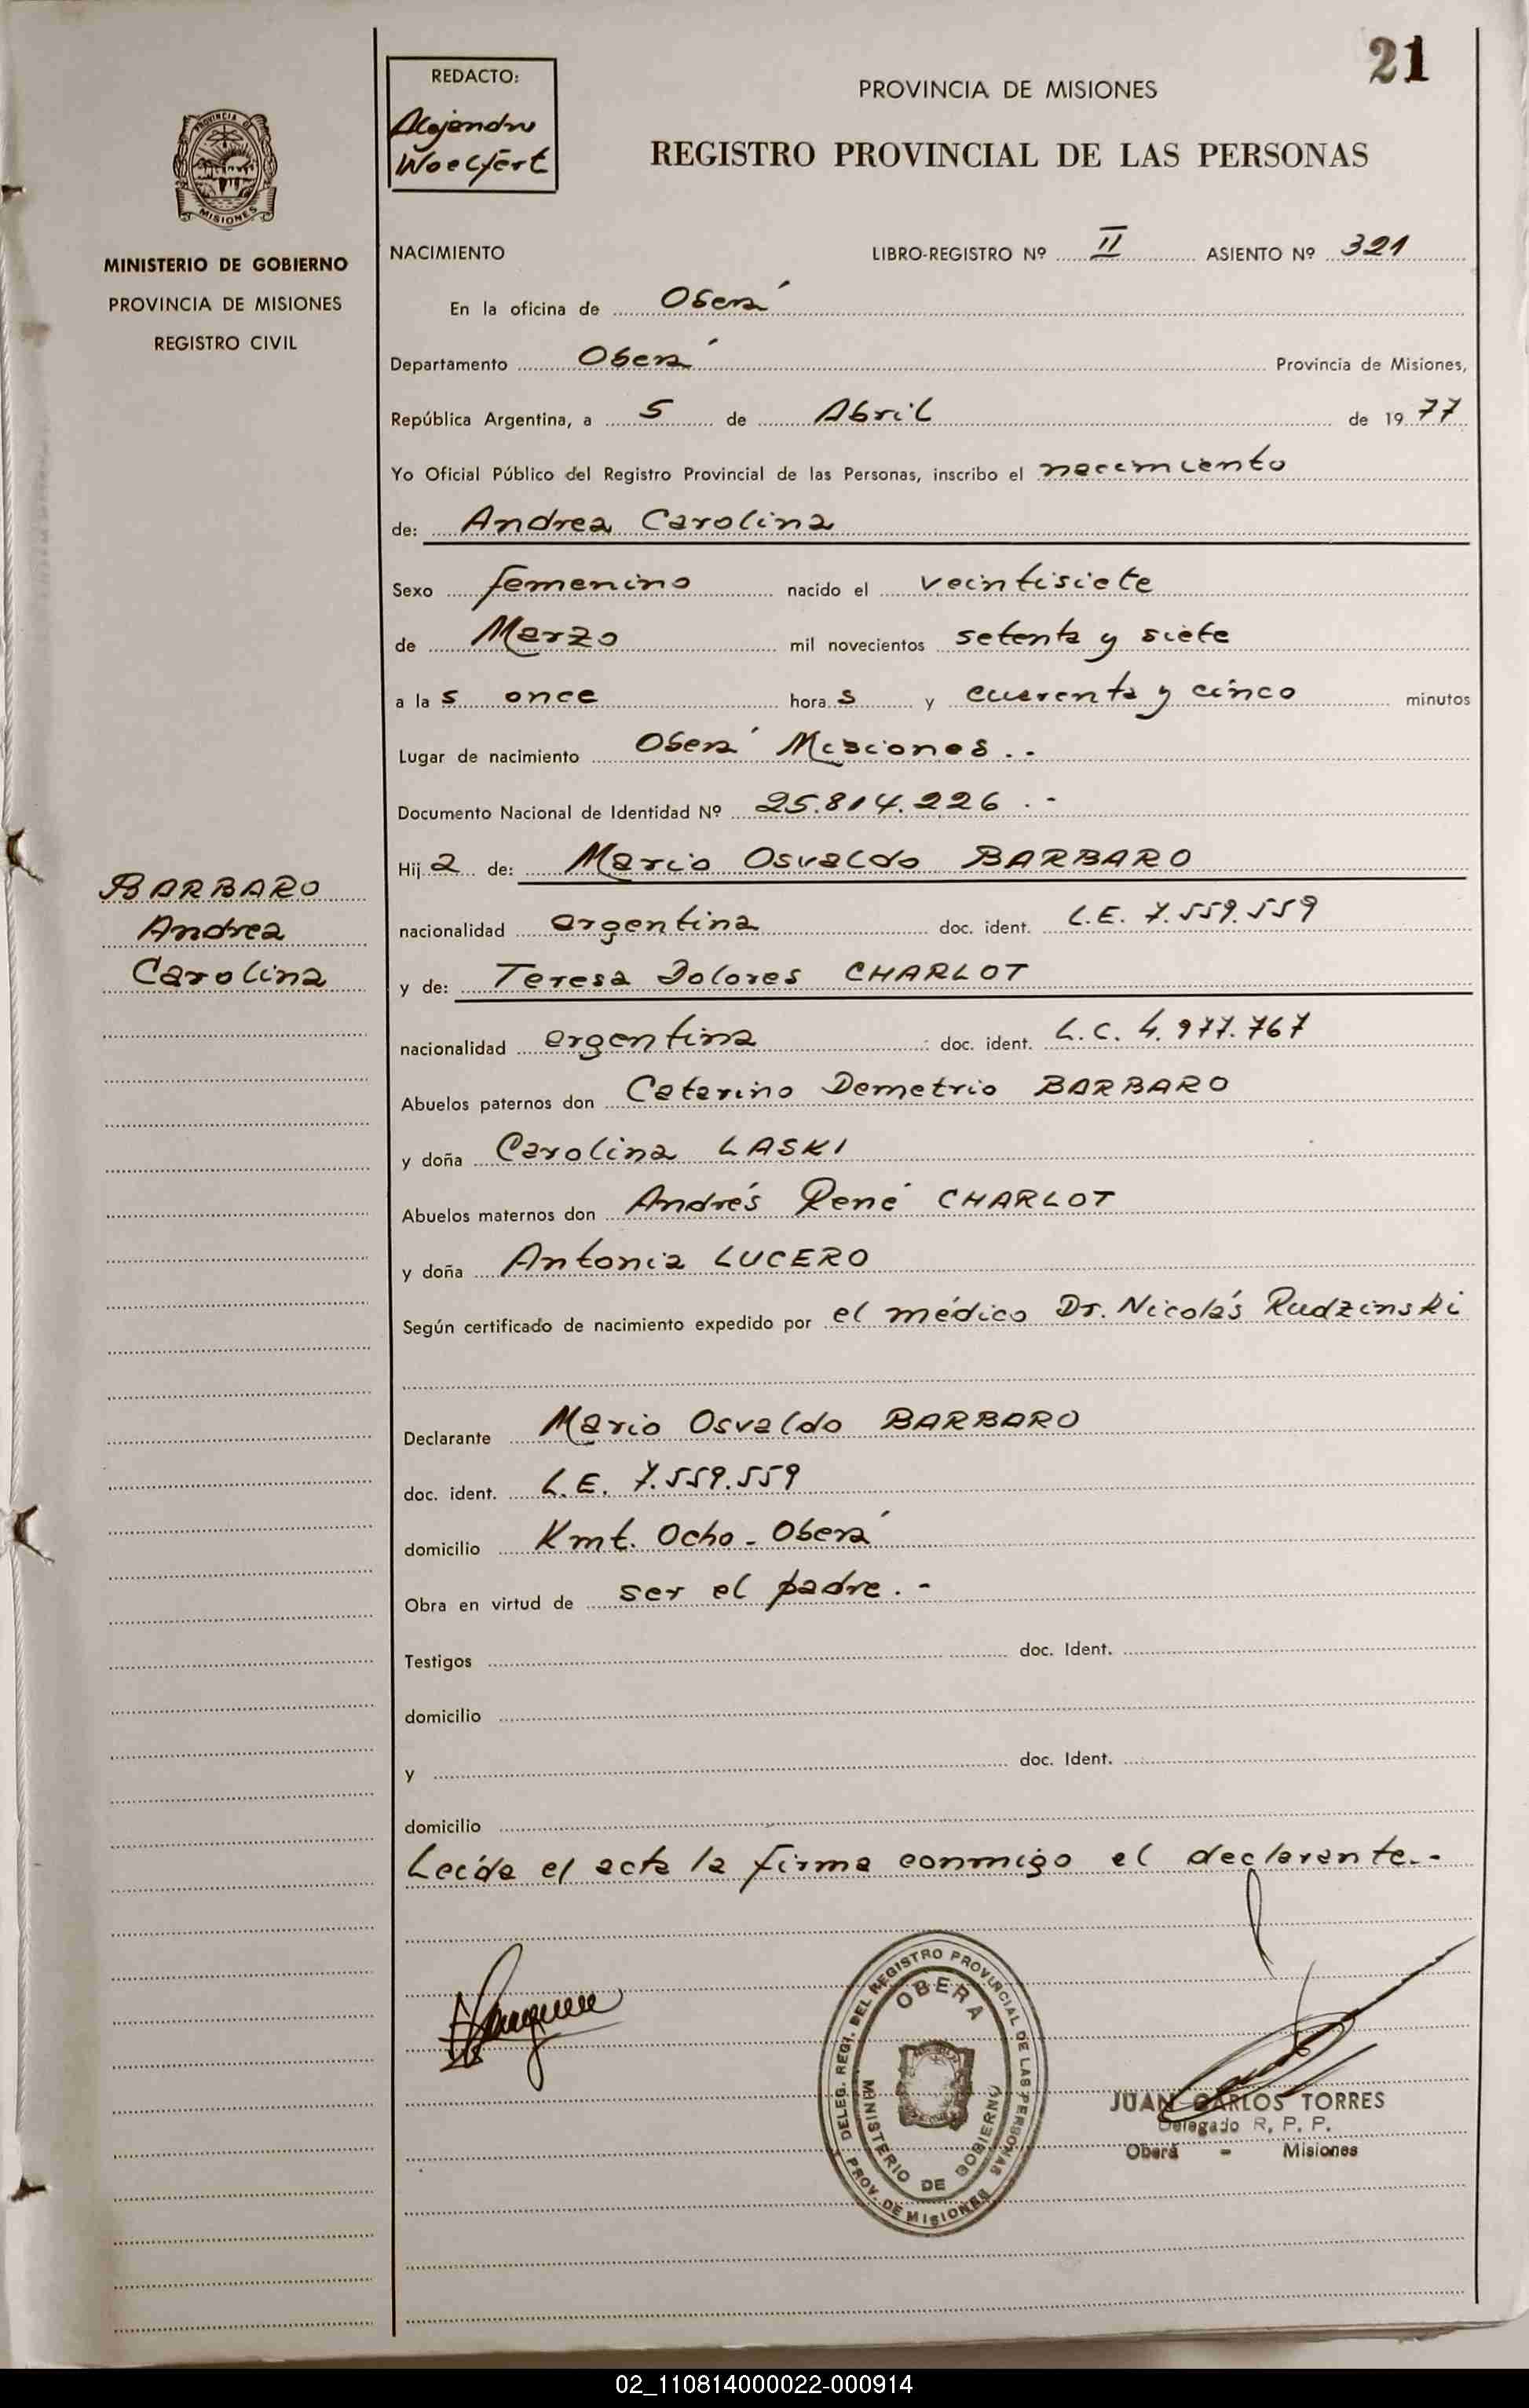 21
REDACTO:
Alejandro
Woelfert
PROVINCIA DE MISIONES
REGISTRO PROVINCIAL DE LAS PERSONAS
MINISTERIO DE GOBIERNO
PROVINCIA DE MISIONES
REGISTRO CIVIL
NACIMIENTO LIBRO-REGISTRO Nº II ASIENTO Nº 321
En la oficina de Oberá
Departamento Oberá Provincia de Misiones,
República Argentina, a 5 de Abril de 1977
Yo Oficial Público del Registro Provincial de las Personas, inscribo el nacimiento
de: Andrea Carolina
Sexo femenino nacido el veintisiete
de Marzo mil novecientos setenta y siete
a las once horas y cuarenta y cinco minutos
Lugar de nacimiento Oberá Misiones.-
Documento Nacional de Identidad Nº 25.814.226.-
Hija de: Mario Osvaldo BARBARO
BARBARO
Andrea
Carolina
nacionalidad argentina doc. ident. L.E. 7.559.559
y de: Teresa Dolores CHARLOT
nacionalidad argentina doc. ident. L.C. 4.977.767
Abuelos paternos don Catarino Demetrio BARBARO
y doña Carolina LASKI
Abuelos maternos don Andrés René CHARLOT
y doña Antonia LUCERO
Según certificado de nacimiento expedido por el médico Dr. Nicolás Rudzinski
Declarante Mario Osvaldo BARBARO
doc. ident. L.E. 7.559.559
domicilio Kmt. Ocho - Oberá
Obra en virtud de ser el padre.-
Testigos doc. Ident.
domicilio
y doc. Ident.
domicilio
Leída el acta la firma conmigo el declarante.-
DELEG. REGI. DEL REGISTRO PROVINCIAL DE LAS PERSONAS
OBERA
MINISTERIO DE GOBIERNO
PROV. DE MISIONES
JUAN CARLOS TORRES
Delegado R. P. P.
Oberá - Misiones
02_110814000022-000914